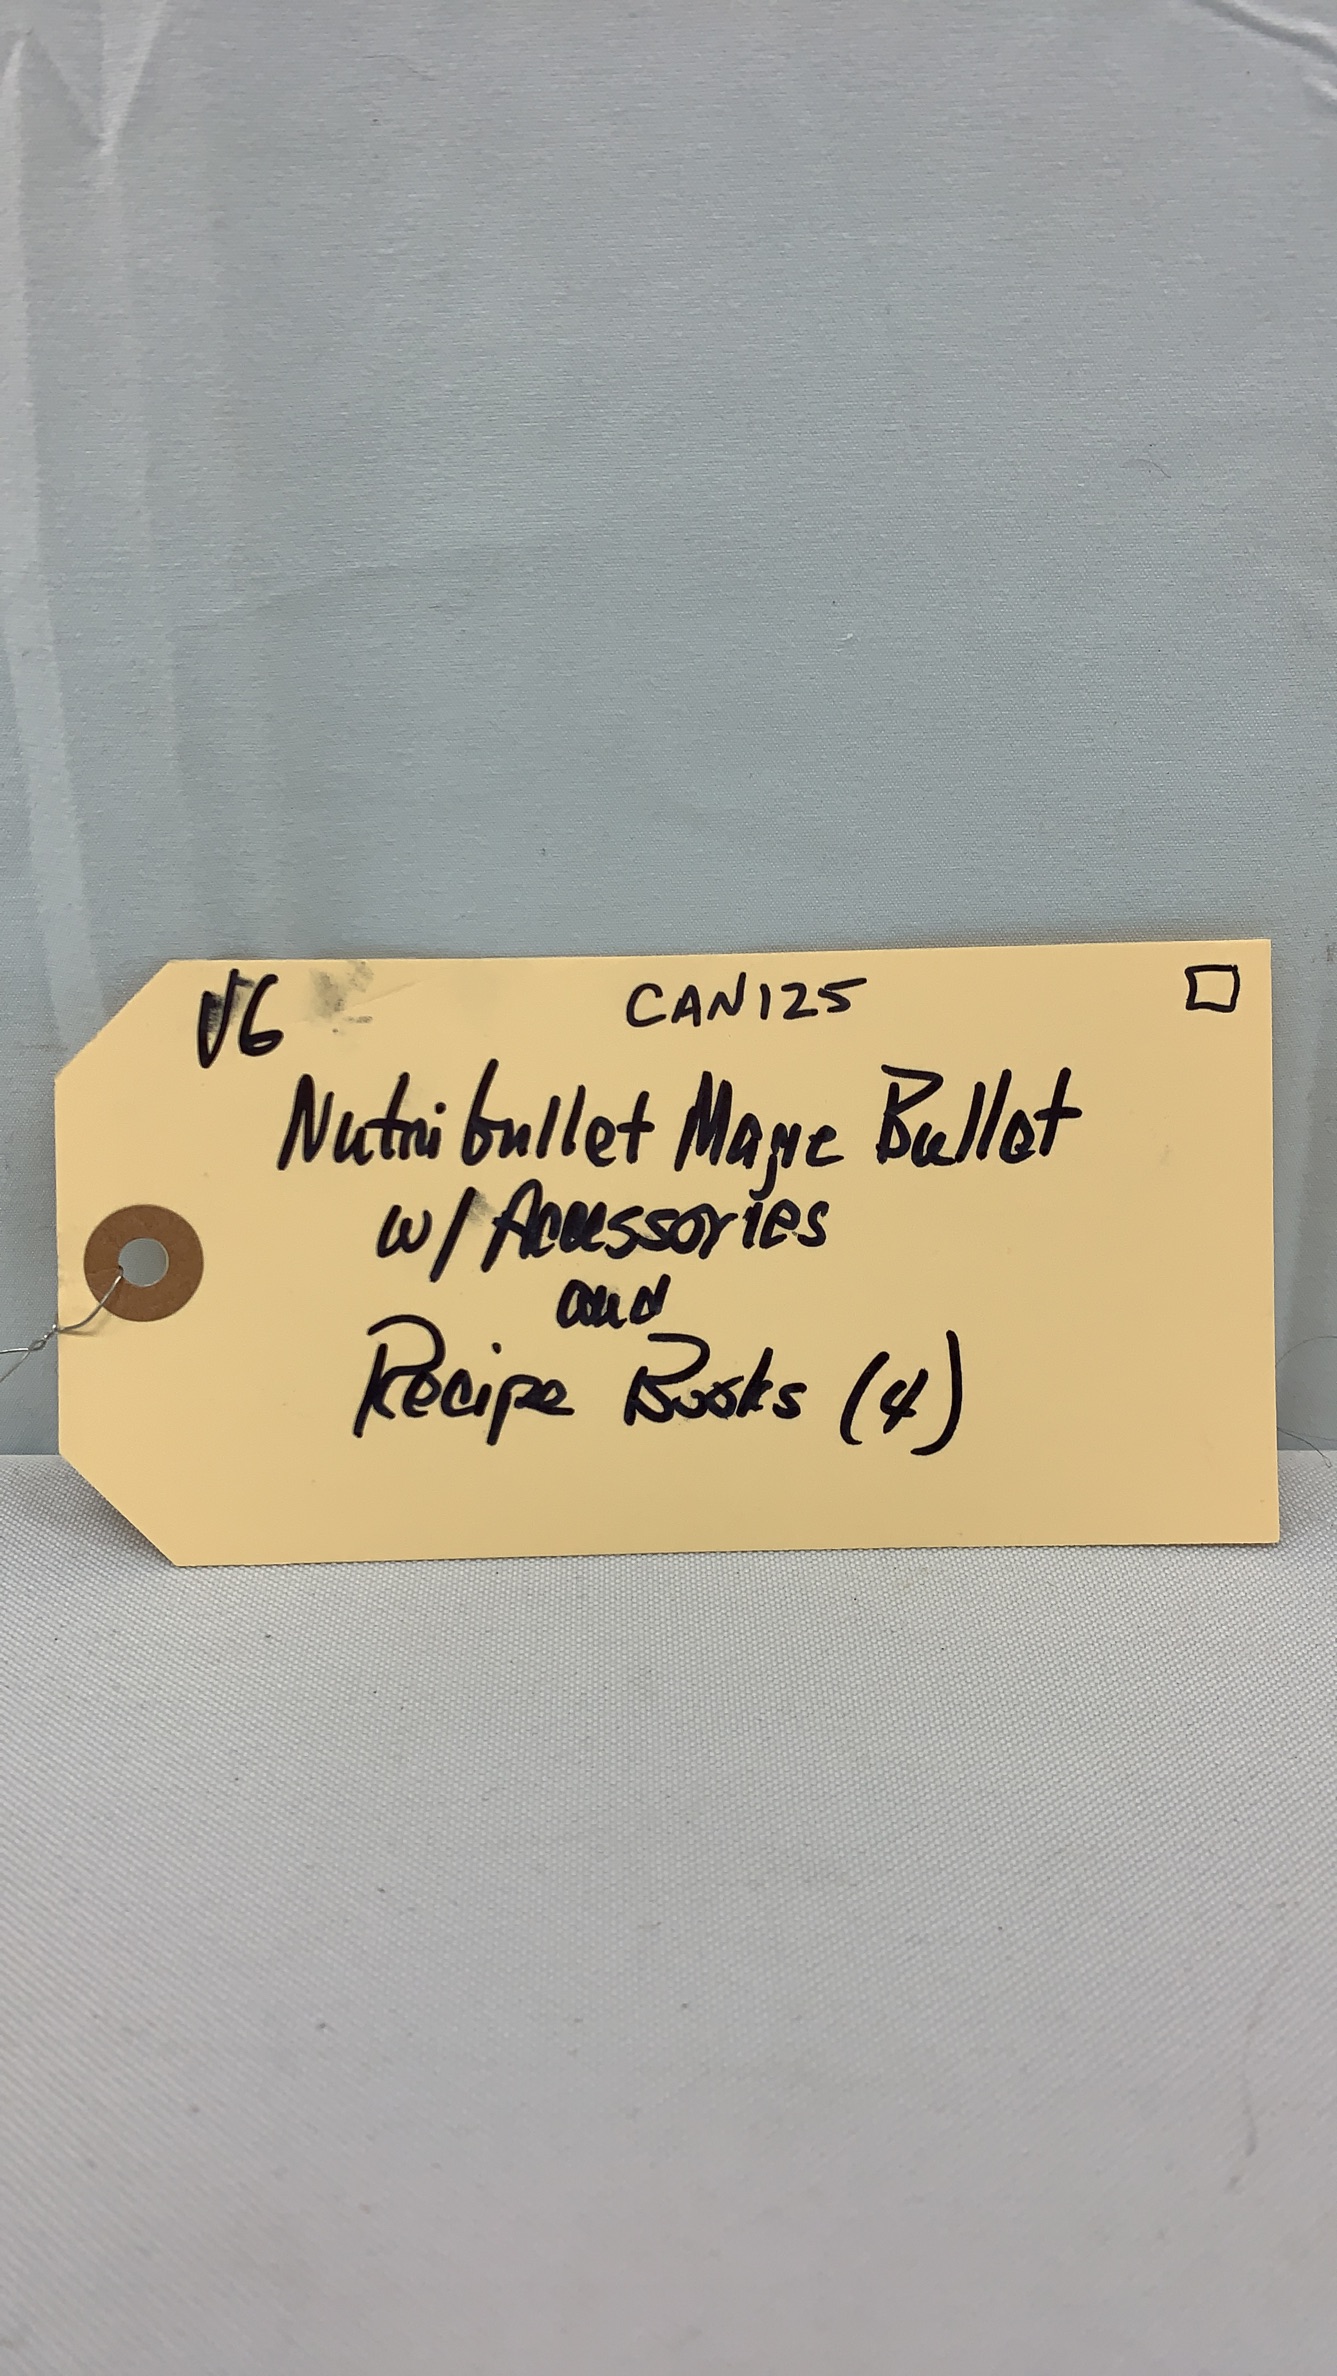 V6 CAN125
Nutribullet Magic Bullet
w/ Accessories
and
Recipe Books (4)